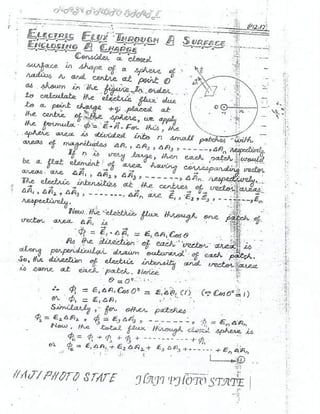 P9.17
ELECTRIC FLUX THROUGH A SURFACE
ENCLOSING A CHARGE
Consider a closed
surface in shape of a sphere of
radius r and centre at point O
as shown in the figure. In order
to calculate the electric flux due
to a point charge +q placed at
the centre of the sphere, we apply
the formula φ = E⃗ . A⃗ . For this, the
sphere area is divided into n small patches with
areas of magnitudes ΔA₁, ΔA₂, ΔA₃, -------, ΔAₙ, respectively.
If n is very large, then each patch would
be a flat element of area having corresponding vector
areas are ΔA⃗₁, ΔA⃗₂, ΔA⃗₃, ------- ΔA⃗ₙ respectively.
The electric intensities at the centres of vector areas
ΔA⃗₁, ΔA⃗₂, ΔA⃗₃, -------, ΔA⃗ₙ are E⃗₁, E⃗₂, E⃗₃, -------, E⃗ₙ
respectively.
Now the electric flux through one patch of
vector area ΔA⃗₁ is
φ₁ = E⃗₁ . ΔA⃗₁ = E₁ ΔA₁ Cosθ
As the direction of each vector area is
along perpendicular drawn outward of each patch.
So, the direction of electric intensity and vector area
is same at each patch. Hence
θ = 0°
∴ φ₁ = E₁ ΔA₁ Cos 0° = E₁ ΔA₁ (1) (∵ Cos 0° = 1)
or φ₁ = E₁ ΔA₁
Similarly, for other patches
φ₂ = E₂ ΔA₂, φ₃ = E₃ ΔA₃, -------, φₙ = Eₙ ΔAₙ
Now, the total flux through closed sphere is
φₑ = φ₁ + φ₂ + φ₃ + ------- + φₙ
or φₑ = E₁ ΔA₁ + E₂ ΔA₂ + E₃ ΔA₃ + ------- + Eₙ ΔAₙ
HAJI PHOTO STATE HAJI PHOTO STATE